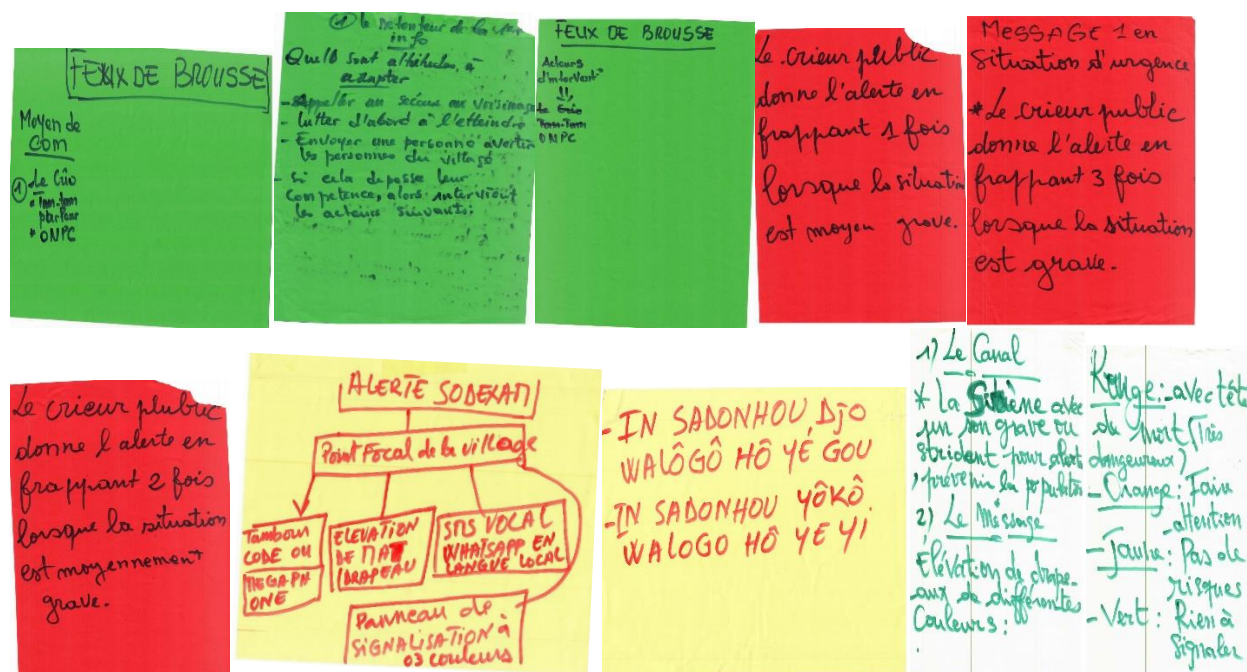 FEUX DE BROUSSE
Moyen de
com
① Le Crio
* Tam-tam
parleur
* ONPC
① le détenteur de la 1ère
info
Quelle sont attitudes, à
adapter
- Appeller au secour au voisinage
- lutter d'abord à l'etteindre
- Envoyer une personne avertir
les personnes du village
- Si cela depasse leur
competence, alors intervient
les acteurs suivants:
FEUX DE BROUSSE
Acteurs
d'intervent°
Tam-Tam
ONPC
Le crieur plublic
donne l'alerte en
frappant 1 fois
lorsque la situation
est moyen grave.
MESSAGE 1 en
Situation d'urgence
* Le crieur public
donne l'alerte en
frappant 3 fois
lorsque la situation
est grave.
Le crieur plubric
donne l'alerte en
frappant 2 fois
lorsque la situation
est moyennement
grave.
ALERTE SODEXAM
Point Focal de la village
Tambour
CODE OU
MEGAPH
ONE
ELEVATION
DE MAT
/DRAPEAU
SMS VOCAL
WHATSAPP EN
LANGUE LOCAL
Panneau de
SIGNALISATION à
03 couleurs
- IN SADONHOU, DJO
WALÔGÔ HÔ YÉ GOU
- IN SADONHOU YÔKÔ
WALOGO HÔ YE YI
1) Le Canal
* La Sirène avec
un son grave ou
strident pour alert
prévenir la populatio
2) Le Message
Élévation de drape-
aux de différentes
Couleurs :
Rouge : avec têt
du mort (Très
dangeureux)
- Orange : Faire
attention
- Jaune : Pas de
risques
- Vert : Rien à
signaler